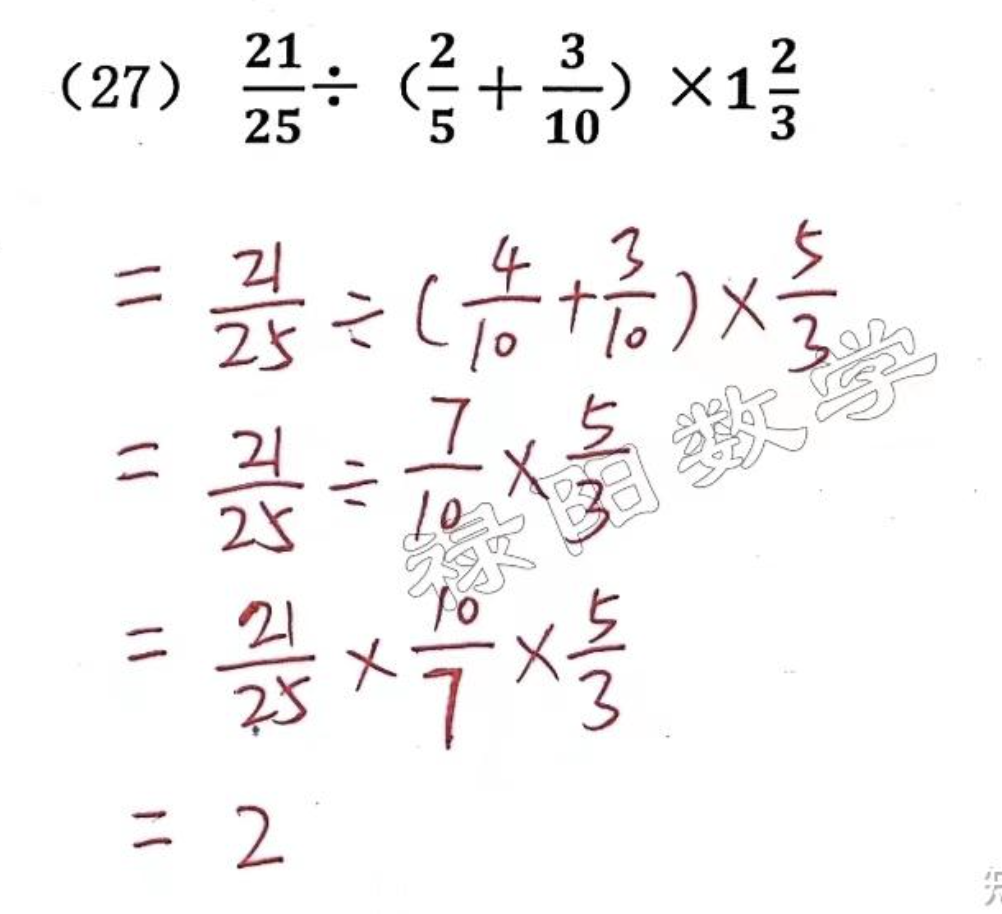 （27） 21/25 ÷ （2/5 + 3/10） × 1 2/3
= 21/25 ÷ (4/10 + 3/10) × 5/3
= 21/25 ÷ 7/10 × 5/3
= 21/25 × 10/7 × 5/3
= 2
禄阳数学